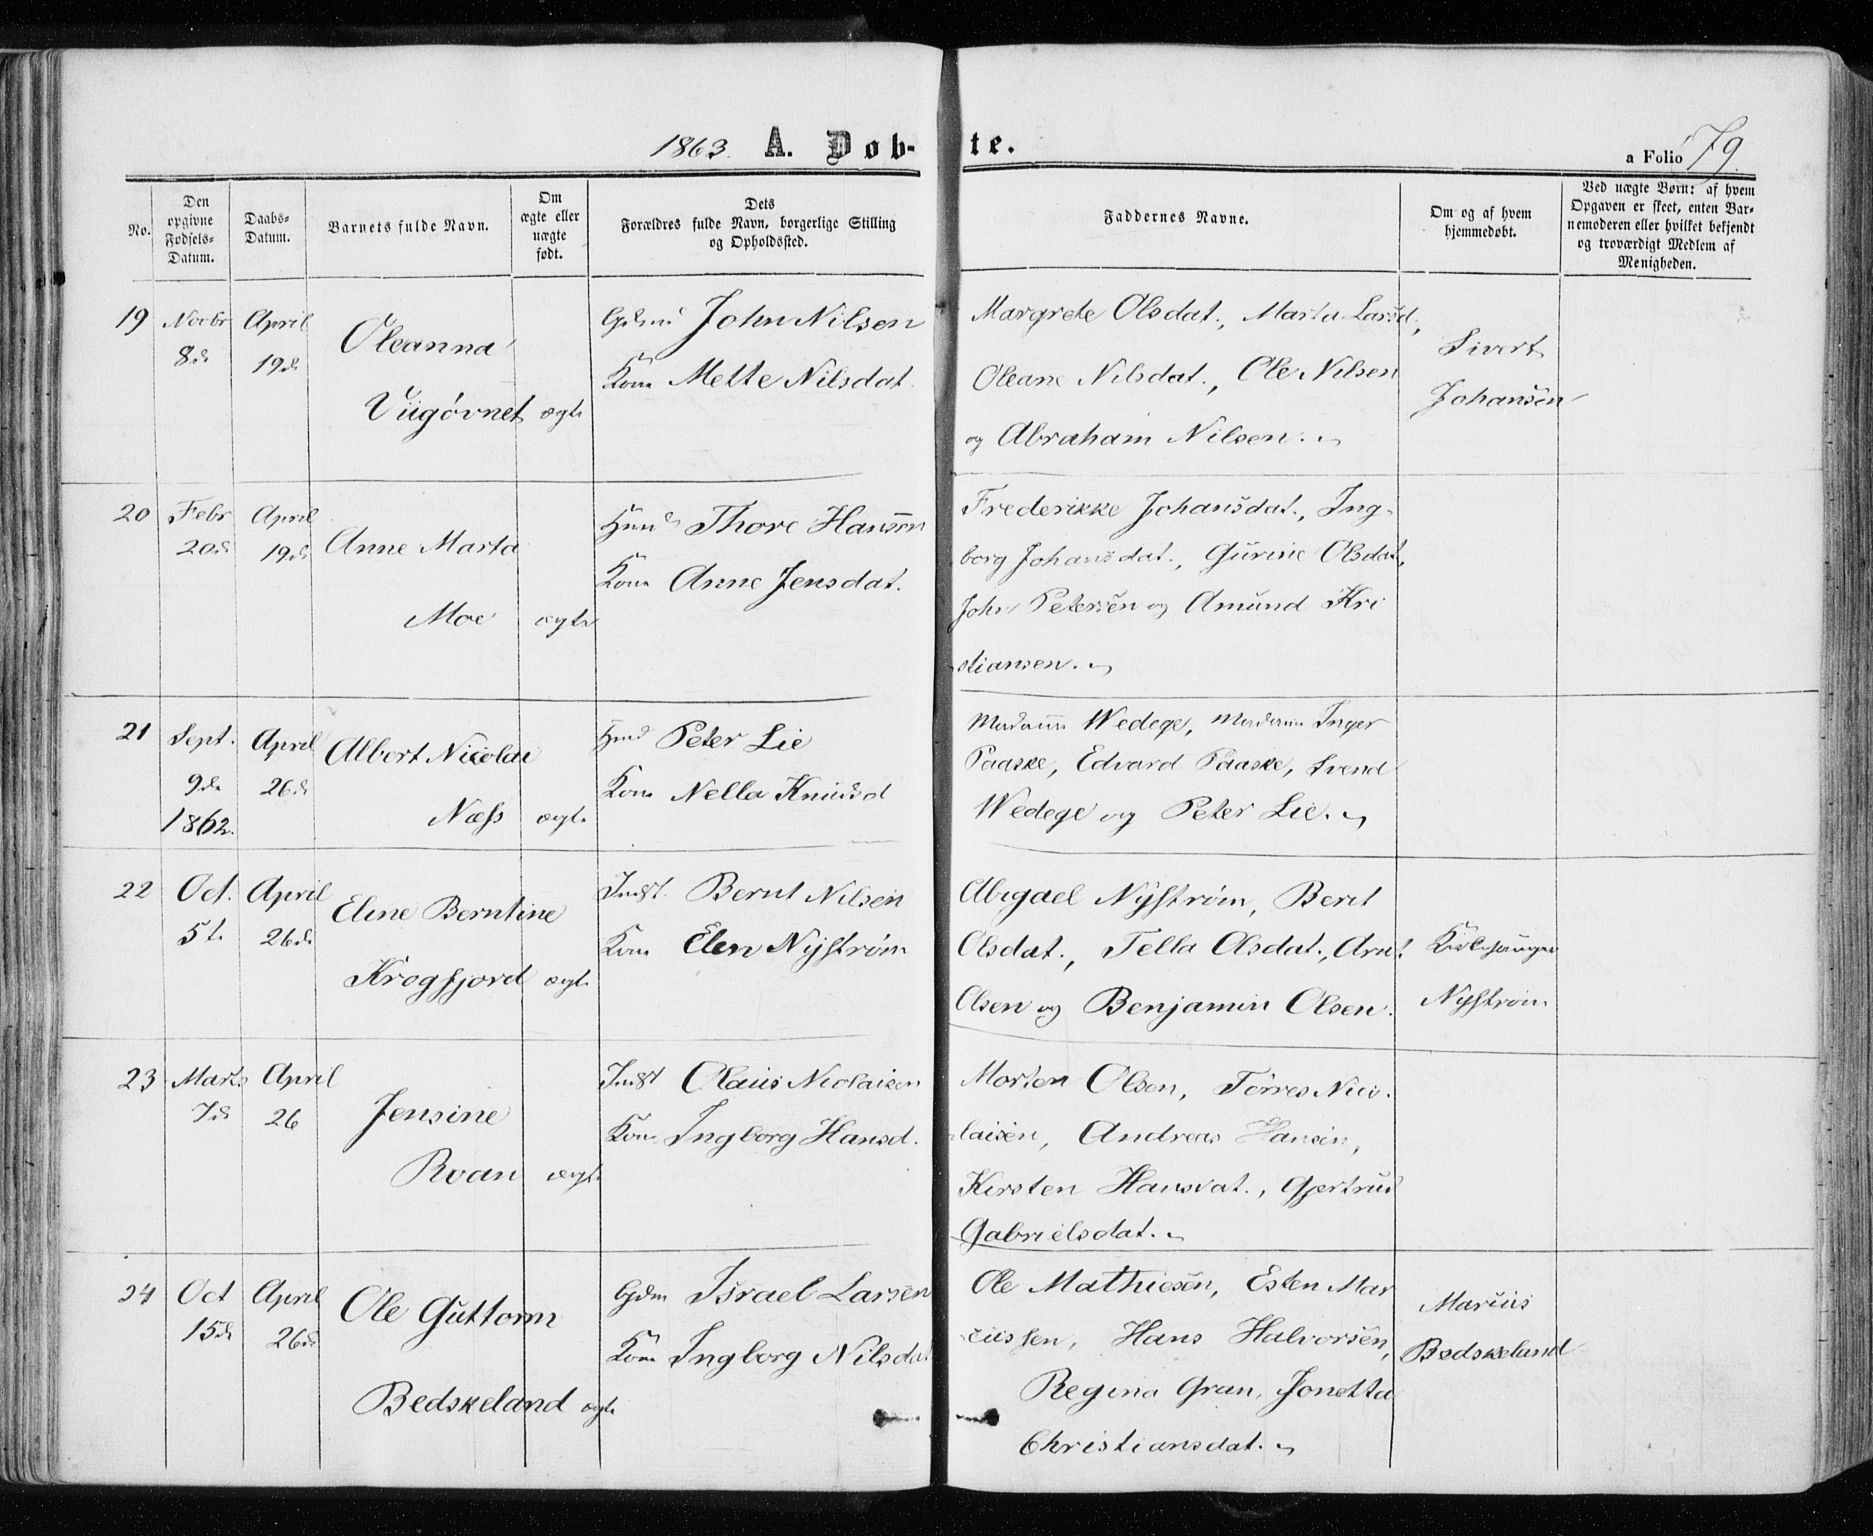 1863. A. Døb-te.
a Folio 79.
No.
Den opgivne Fødsels-Datum.
Daabs-Datum.
Barnets fulde Navn.
Om ægte eller uægte født.
Dets Forældres fulde Navn, borgerlige Stilling og Opholdssted.
Faddernes Navne.
Om og af hvem hjemmedøbt.
Ved uægte Børn: af hvem Opgaven er skeet, enten Barnemoderen eller hvilket bekjendt og troværdigt Medlem af Menigheden.
19 Novbr 8de April 19de
Oleanna
Viigøvnet ægte
John Nilsen
Kone Mette Nilsdat.
Margrete Olsdat., Marta Larsd,
Oleane Nilsdat., Ole Nilsen
og Abraham Nilsen.
Sivert
Johansen
20 Febr 20de April 19de
Anne Marta
Moe ægte
Huusmd Thore Hansen
Kone Anne Jensdat.
Frederikke Johansdat., Ing-
borg Johansdat., Gurine Olsdat,
John Petersen og Amund Kri
stiansen.
21 Sept. 9de 1862. April 26de
Albert Nicolai
Næss ægte
Hmd Peter Lie
Kone Nella Knudsd
Madame Wedege, Madame Inger
Paaske, Edvard Paaske, Svend
Wedege og Peter Lie.
22 Oct. 5t. April 26de
Eline Berntine
Krogfjord ægt.
Indst. Bernt Nilsen
Kone Elen Nystrøm
Abigael Nystrøm, Berit
Olsdat., Tella Olsdat., Arnt
Olsen og Benjamin Olsen.
Kirkesanger
Nystrøm
23 Marts 7de April 26
Jensine
Roan ægt.
Indst Olaus Nicolaisen
Kone Ingborg Hansd.
Morten Olsen, Torres Nico-
laisen, Andreas Hansen,
Kirsten Hansdat., Gjertrud
Gabrielsdat.
24 Oct 15de April 26de
Ole Guttorm
Bedskeland ægt.
Gdm Israel Larsen
Kone Ingborg Nilsdat
Ole Mathiesen, Esten Mar
cussen, Hans Halvorsen,
Regina Gran, Jonetta
Christiansdat.
Marius
Bedskeland